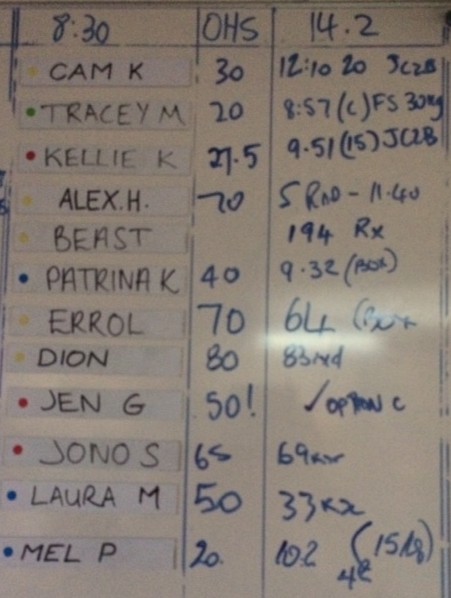 8:30 OHS 14.2
CAM K 30 12:10 20 JC2B
TRACEY M 20 8:57 (C) FS 30kg
KELLIE K 27.5 9.51 (15) JC2B
ALEX.H. 70 5 RND - 11.40
BEAST 194 Rx
PATRINA K 40 9.32 (BOX)
ERROL 70 64
DION 80 83rxd
JEN G 50! ✓ OPTION C
JONO S 65 69
LAURA M 50 33 RX
MEL P 20. 10.2 (15kg)